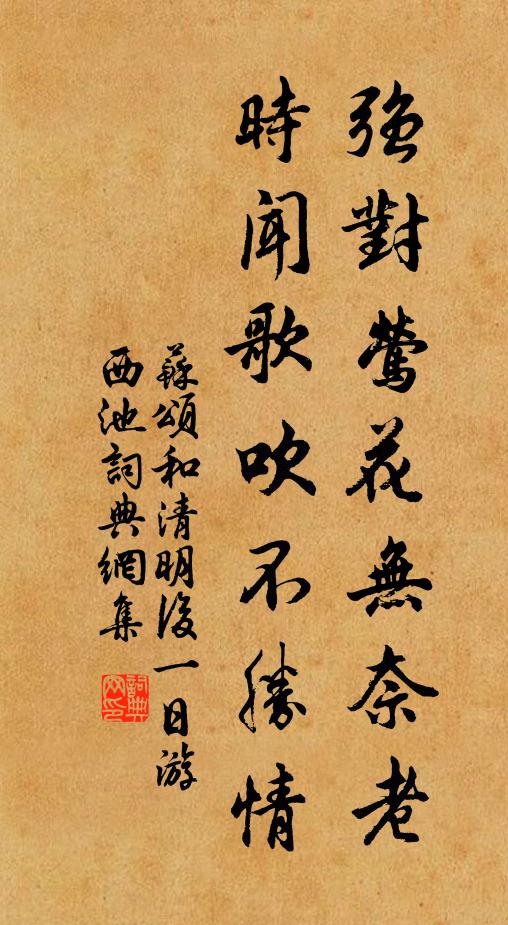 強對鶯花無奈老
時聞歌吹不勝情
蘇頌和清明後一日游
西池詞典網集
詞典
网印